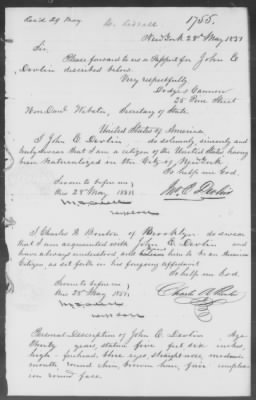 Rec'd 29 May
1755.
New York 28th May 1851
Sir,
Please forward to us a Passport for John E
Devlin described below
Very respectfully
25 Pine Street
Hon Danl Webster, Secretary of State.
United States of America
I John E. Devlin, do solemnly, sincerely and
truly swear that I am a citizen of the United States having
been Naturalized in the City of New York
So help me God.
Sworn to before me,
this 28th May 1851
Jno. E. Devlin
I Charles H. of Brooklyn do swear
that I am acquainted with John E. Devlin and
have always understood and believe him to be an American
Citizen, as set forth in his foregoing affidavit
So help me God.
Sworn to before me,
this 28 May 1851,
Charles H.
Personal Description of John E. Devlin. Age
Thirty years, stature five feet six inches,
high forehead, blue eyes straight nose, medium
mouth round chin, brown hair, fair complex-
ion round face.